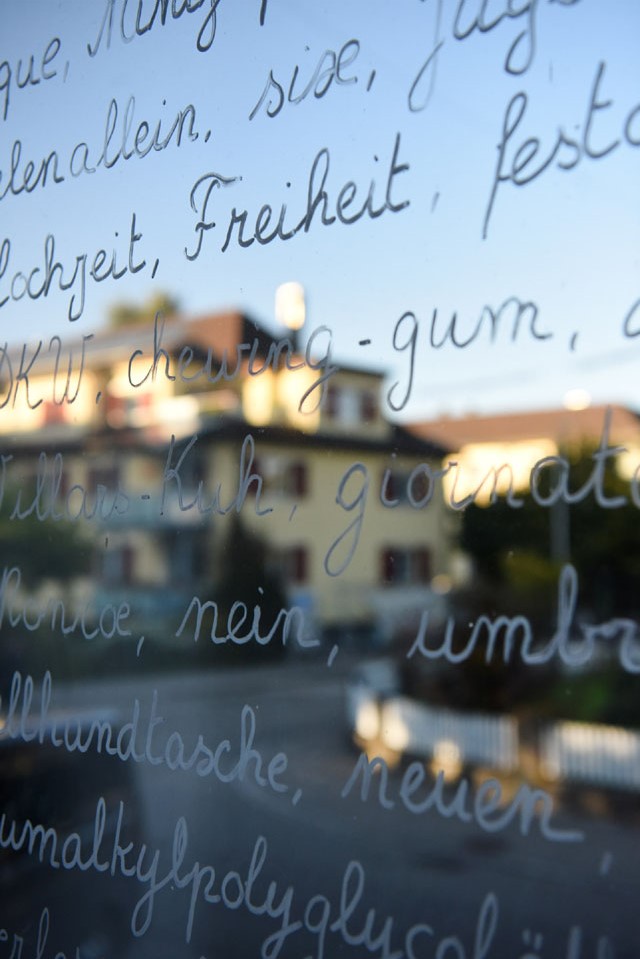 que,
elenallein,
ochzeit, Freiheit, festa
DKW, chewing-gum,
Villars-Kuh, giornata
nein, umbr
llhandtasche, neuen,
umalkylpolyglycol